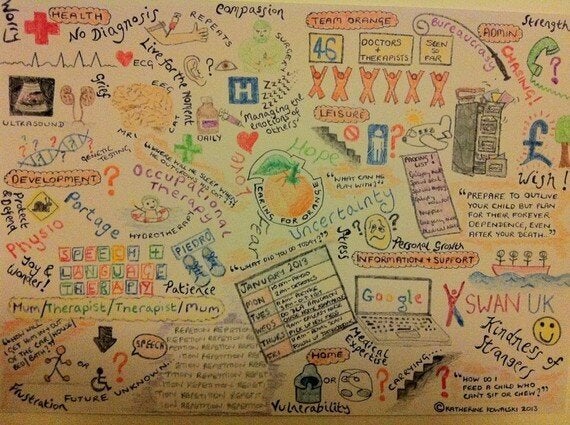 Worry
HEALTH
No Diagnosis
REPEATS
Compassion
TEAM ORANGE
Bureaucracy
ADMIN
Strength
46
DOCTORS
+
THERAPISTS
SEEN
SO
FAR
CHASING!
?
ECG
Live for the Moment
SURGERY
Grief
EEG
H
ULTRASOUND
MRI
CAT
DAILY
Managing the
emotions of
others
LEISURE
? ? ?
GENETIC TESTING
Love
Hope
"WHAT CAN HE
PLAY WITH?"
£
?
Wish!
DEVELOPMENT
?
Protect
& Defend
Portage
Occupational
Therapy
HYDROTHERAPY
CARING FOR ORANGE
Uncertainty
Fear
"PREPARE TO OUTLIVE
YOUR CHILD BUT PLAN
FOR THEIR FOREVER
DEPENDENCE, EVEN
AFTER YOUR DEATH..."
Physio
Joy &
Wonder!
SPEECH +
LANGUAGE
THERAPY
PIEDRO
Patience
"WHAT DID YOU DO TODAY?"
Stress
Personal Growth
INFORMATION + SUPPORT
JANUARY 2013
MON
TUES
WEDS
THURS
FRI
Google
SWAN UK
Mum/Therapist/Therapist/Mum
Kindness of
Strangers
Medical
Expertise
SPEECH
?
OR
?
Frustration
FUTURE
UNKNOWN
REPETITION REPETITION
REPETITION REPETITION
REPETITION REPETITION
REPETITION REPETITION
REPETITION REPETITION
REPETITION REPETITION
HOME
OR
?
CARRYING...
Vulnerability
"HOW DO I
FEED A CHILD WHO
CAN'T SIT OR CHEW?"
© KATHERINE KOWALSKI 2013